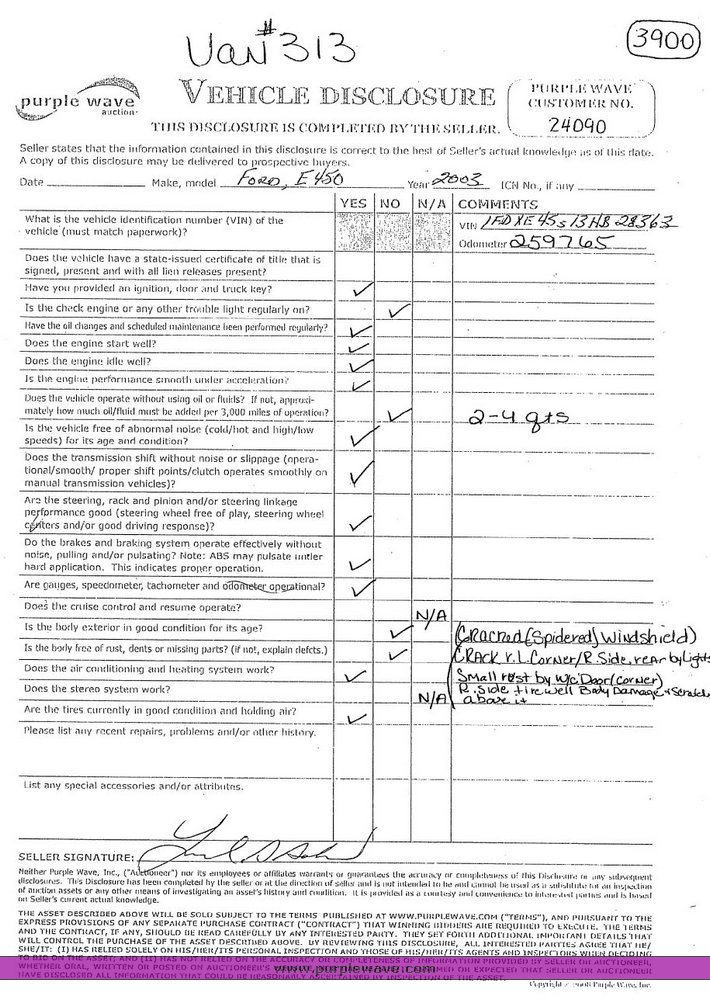 Van #313
3900
purple wave
auction
VEHICLE DISCLOSURE
PURPLE WAVE
CUSTOMER NO.
24090
THIS DISCLOSURE IS COMPLETED BY THE SELLER.
Seller states that the information contained in this disclosure is correct to the best of Seller's actual knowledge as of this date.
A copy of this disclosure may be delivered to prospective buyers.
Date Make, model Ford, E450 Year 2003 ICN No., if any
YES NO N/A COMMENTS
What is the vehicle identification number (VIN) of the VIN 1FDXE45S13HB28363
vehicle (must match paperwork)? Odometer 259765
Does the vehicle have a state-issued certificate of title that is
signed, present and with all lien releases present?
Have you provided an ignition, door and truck key? ✓
Is the check engine or any other trouble light regularly on? ✓
Have the oil changes and scheduled maintenance been performed regularly? ✓
Does the engine start well? ✓
Does the engine idle well? ✓
Is the engine performance smooth under acceleration? ✓
Does the vehicle operate without using oil or fluids? If not, approxi-
mately how much oil/fluid must be added per 3,000 miles of operation? ✓ 2-4 qts
Is the vehicle free of abnormal noise (cold/hot and high/low
speeds) for its age and condition? ✓
Does the transmission shift without noise or slippage (opera-
tional/smooth/ proper shift points/clutch operates smoothly on
manual transmission vehicles)? ✓
Are the steering, rack and pinion and/or steering linkage
performance good (steering wheel free of play, steering wheel
centers and/or good driving response)? ✓
Do the brakes and braking system operate effectively without
noise, pulling and/or pulsating? Note: ABS may pulsate under
hard application. This indicates proper operation. ✓
Are gauges, speedometer, tachometer and odometer operational? ✓
Does the cruise control and resume operate? N/A
Is the body exterior in good condition for its age? ✓ (Cracked (Spidered) Windshield)
Is the body free of rust, dents or missing parts? (if not, explain defcts.) ✓ Crack r. L. Corner/R Side, rear by Lights
Does the air conditioning and heating system work? ✓ Small rust by W/c Door (corner)
Does the stereo system work? N/A R. Side tire well Body Damage + Scratch
above it
Are the tires currently in good condition and holding air? ✓
Please list any recent repairs, problems and/or other history.
List any special accessories and/or attributes.
SELLER SIGNATURE:
Neither Purple Wave, Inc., ("Auctioneer") nor its employees or affiliates warrants or guarantees the accuracy or completeness of this Disclosure or any subsequent
disclosures. This Disclosure has been completed by the seller or at the direction of seller and is not intended to be and cannot be used as a substitute for an inspection
of auction assets or any other means of investigating an asset's history and condition. It is provided as a courtesy and convenience to interested parties and is based
on Seller's current actual knowledge.
THE ASSET DESCRIBED ABOVE WILL BE SOLD SUBJECT TO THE TERMS PUBLISHED AT WWW.PURPLEWAVE.COM ("TERMS"), AND PURSUANT TO THE
EXPRESS PROVISIONS OF ANY SEPARATE PURCHASE CONTRACT ("CONTRACT") THAT WINNING BIDDERS ARE REQUIRED TO EXECUTE. THE TERMS
AND THE CONTRACT, IF ANY, SHOULD BE READ CAREFULLY BY ANY INTERESTED PARTY. THEY SET FORTH ADDITIONAL IMPORTANT DETAILS THAT
WILL CONTROL THE PURCHASE OF THE ASSET DESCRIBED ABOVE. BY REVIEWING THIS DISCLOSURE, ALL INTERESTED PARTIES AGREE THAT HE/
SHE/IT: (I) HAS RELIED SOLELY ON HIS/HER/ITS PERSONAL INSPECTION AND THOSE OF HIS/HER/ITS AGENTS AND INSPECTORS WHEN DECIDING
TO BID ON THE ASSET; AND (II) HAS NOT RELIED ON THE ACCURACY OR COMPLETENESS OF INFORMATION PROVIDED BY SELLER OR AUCTIONEER,
WHETHER ORAL, WRITTEN OR POSTED ON AUCTIONEER'S OR EXPECTED THAT SELLER OR AUCTIONEER
www.purplewave.com
HAVE DISCLOSED ALL INFORMATION THAT COULD BE REASONABLY ASCERTAINED BY INSPECTION OF THE ASSET.
Copyright © 2008 Purple Wave, Inc.